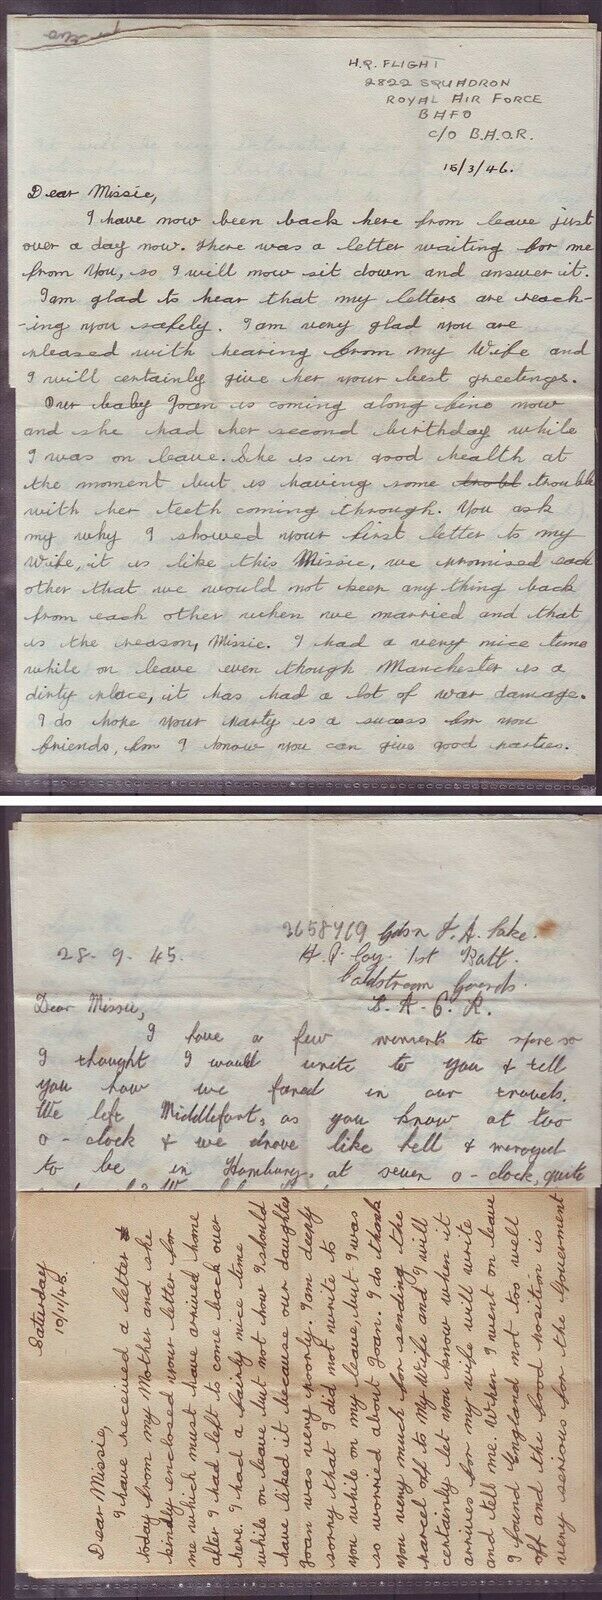 H.Q. FLIGHT
2822 SQUADRON
ROYAL AIR FORCE
BAFO
c/o B.A.O.R.
15/3/46.
Dear Missie,
I have now been back here from leave just
over a day now. There was a letter waiting for me
from you, so I will now sit down and answer it.
I am glad to hear that my letters are reach-
-ing you safely. I am very glad you are
pleased with hearing from my Wife and
I will certainly give her your best greetings.
Our baby Joan is coming along fine now
and she had her second birthday while
I was on leave. She is in good health at
the moment but is having some trouble
with her teeth coming through. You ask
my why I showed your first letter to my
Wife, it is like this Missie, we promised each
other that we would not keep any thing back
from each other when we married and that
is the reason, Missie. I had a very nice time
while on leave even though Manchester is a
dirty place, it has had a lot of war damage.
I do hope your party is a sucess for you
friends, for I know you can give good parties.
3658769 Gdsn J. A. Lake.
28-9-45.
H.Q. Coy. 1st Batt.
Coldstream Guards.
Dear Missie,
I have a few moments to spare so
I thought I would write to you & tell
you how we fared in our travels.
We left Middlefart, as you know at two
o-clock & we drove like hell & managed
to be in Hamburg, at seven o-clock, quite
Saturday
10/11/45.
Dear Missie,
I have received a letter
today from my Mother and she
kindly enclosed your letter for
me which must have arrived home
after I had left to come back over
here. I had a fairly nice time
while on leave but not how I should
have liked it because our daughter
Joan was very poorly. I am deeply
sorry that I did not write to
you while on my leave, but I was
so worried about Joan. I do thank
you very much for sending the
parcel off to My Wife and I will
certainly let you know when it
arrives for my wife will write
and tell me. When I went on leave
I found England not too well
off and the food position is
very serious for the Government